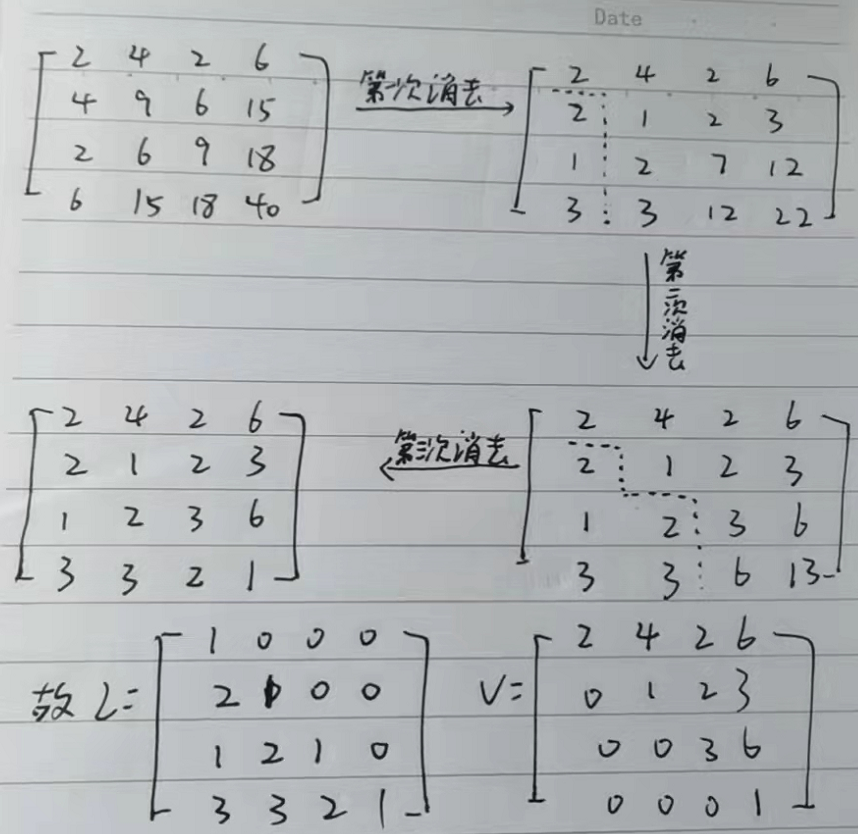 Date
2 4 2 6
4 9 6 15
2 6 9 18
6 15 18 40
第一次消去
2 4 2 6
2 1 2 3
1 2 7 12
3 3 12 22
第二次消去
2 4 2 6
2 1 2 3
1 2 3 6
3 3 6 13
第三次消去
2 4 2 6
2 1 2 3
1 2 3 6
3 3 2 1
故 L=
1 0 0 0
2 1 0 0
1 2 1 0
3 3 2 1
U=
2 4 2 6
0 1 2 3
0 0 3 6
0 0 0 1